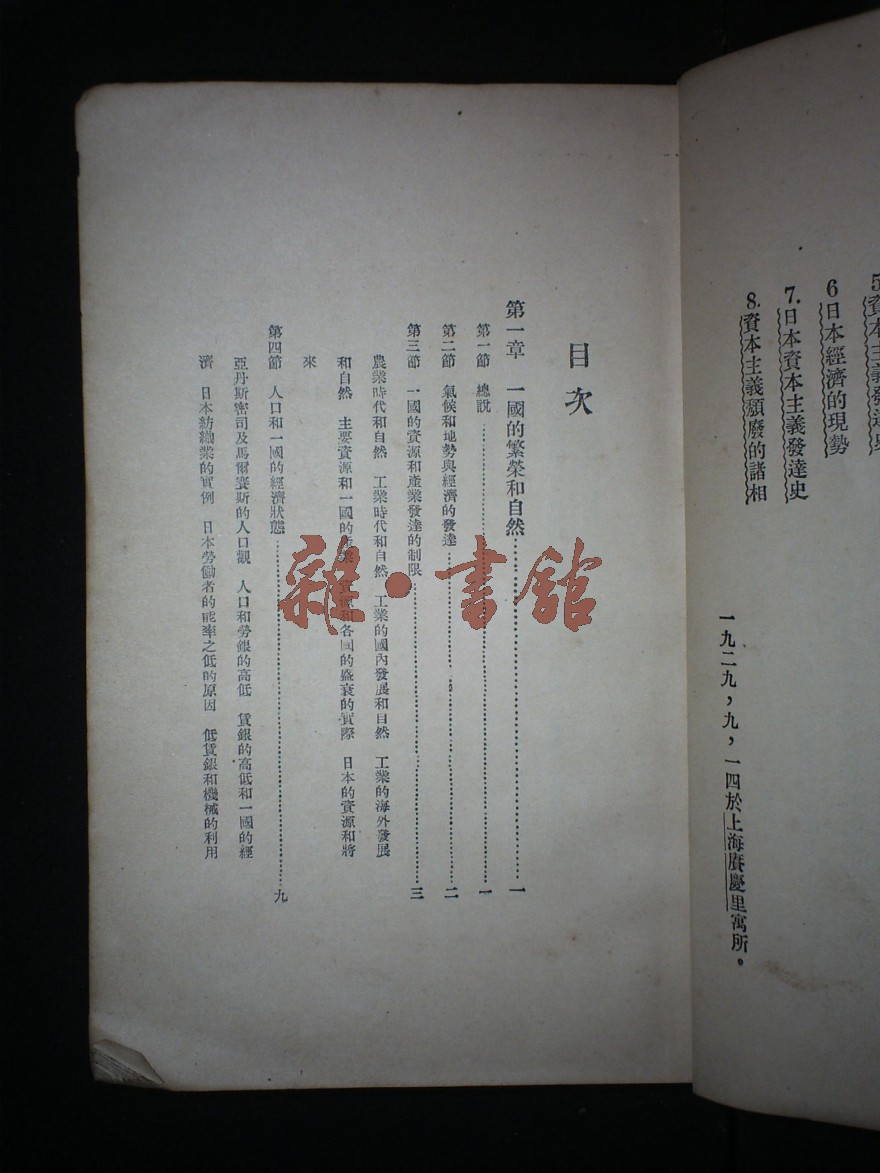 5資本主義發達史
6日本經濟的現勢
7.日本資本主義發達史
8.資本主義頹廢的諸相
一九二九，九，一四於上海賡慶里寓所。
目次
第一章　一國的繁榮和自然……一
第一節　總說……一
第二節　氣候和地勢與經濟的發達……二
第三節　一國的資源和產業發達的制限……三
農業時代和自然　工業時代和自然　工業的國內發展和自然　工業的海外發展
和自然　主要資源和一國的　資源和各國的盛衰的實際　日本的資源和將
來
第四節　人口和一國的經濟狀態……九
亞丹斯密司及馬爾賽斯的人口觀　人口和勞銀的高低　賃銀的高低和一國的經
濟　日本紡織業的實例　日本勞働者的能率之低的原因　低賃銀和機械的利用
雜·書館